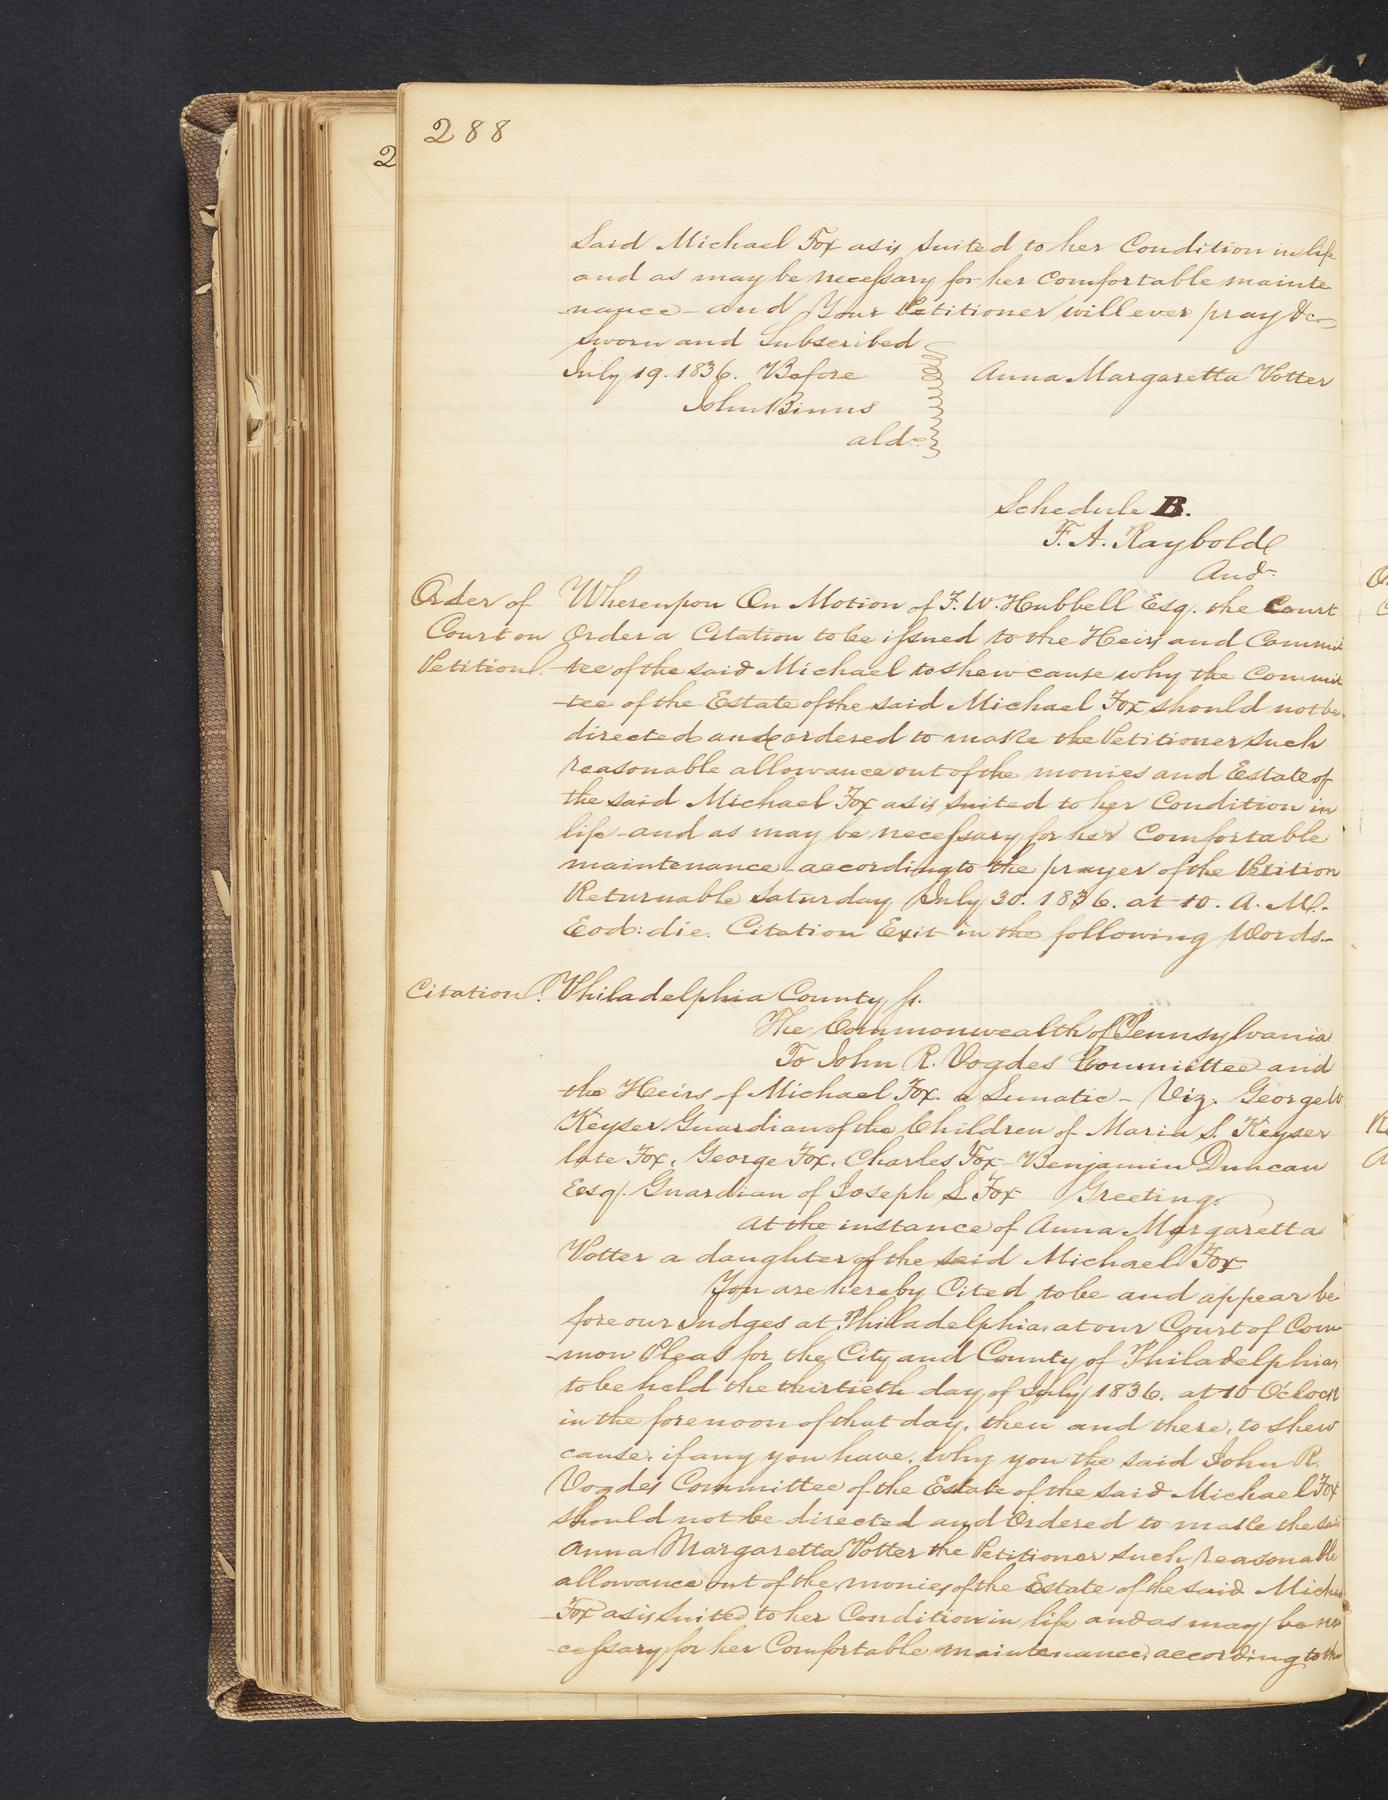 288
2
Said Michael Fox as is suited to her Condition in life
and as may be necessary for her comfortable mainte
nance - and Your Petitioner will ever pray &c
sworn and Subscribed
July 19. 1836. Before
John Binns
ald-
Anna Margaretta Votter
Schedule B.
F. A. Raybold
Aud-
Order of
Court on
Petition.
Whereupon On Motion of F. W. Hubbell Esq. the Court
Order a Citation to be issued to the Heirs and Commit
tee of the said Michael to shew cause why the Commit
-tee of the Estate of the said Michael Fox should not be
directed and ordered to make the Petitioner such
reasonable allowance out of the monies and Estate of
the said Michael Fox as is suited to her Condition in
life - and as may be necessary for her Comfortable
maintenance - according to the prayer of the Petition
Returnable Saturday July 30. 1836. at 10. A. M.
Eod: die. Citation Exit in the following Words-
Citation.
Philadelphia County ss.
The Commonwealth of Pennsylvania
To John R. Vogdes Committee and
the Heirs of Michael Fox a Lunatic - Viz. George W
Keyser Guardian of the Children of Maria S. Keyser
late Fox, George Fox, Charles Fox - Benjamin Duncan
Esq. Guardian of Joseph S Fox Greeting.
At the instance of Anna Margaretta
Votter a daughter of the said Michael Fox
You are hereby Cited to be and appear be
fore our Judges at Philadelphia, at our Court of Com
-mon Pleas for the City and County of Philadelphia,
to be held the thirtieth day of July 1836. at 10 O'clock
in the forenoon of that day, then and there, to shew
cause, if any you have, why you the said John R.
Vogdes Committee of the Estate of the said Michael Fox
should not be directed and Ordered to make the said
Anna Margaretta Votter the Petitioner such reasonable
allowance out of the monies of the Estate of the said Michael
Fox as is suited to her Condition in life and as may be ne
-cessary for her Comfortable maintenance, according to the